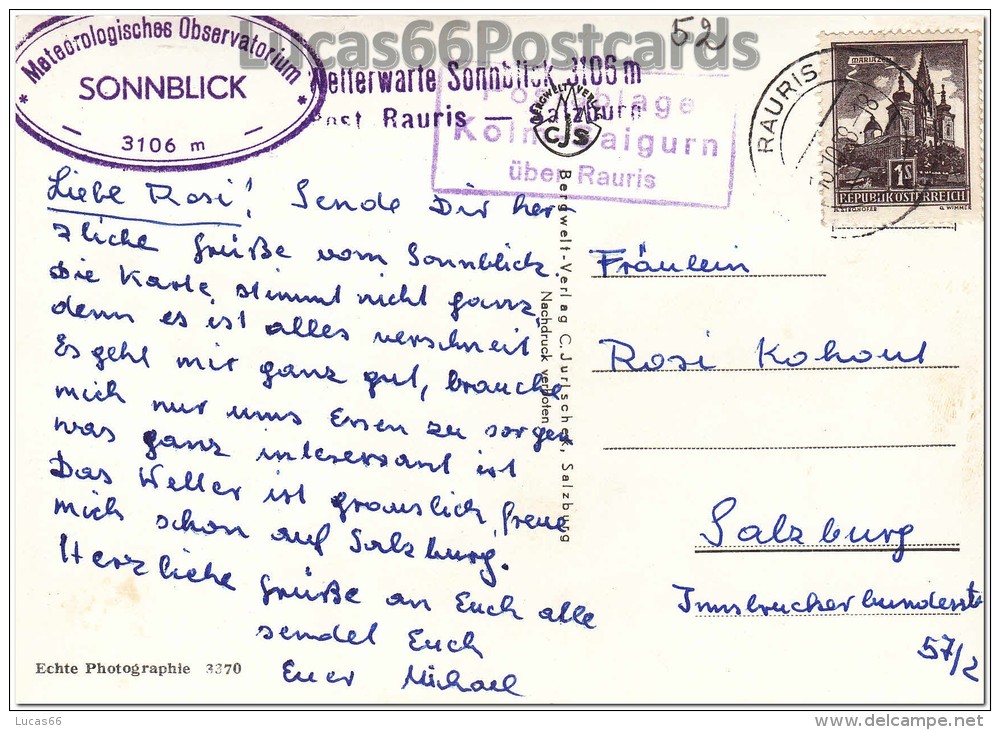 Lucas66Postcards
52
Meteorologisches Observatorium
SONNBLICK
3106 m
Wetterwarte Sonnblick 3106 m
Post Rauris — Salzburg
Postablage
Kolm Saigurn
über Rauris
BERGWELT VERLAG
CJS
RAURIS
MARIAZELL
1S
REPUBLIK ÖSTERREICH
Liebe Rosi! Sende Dir her-
zliche Grüße vom Sonnblick.
Die Karte stimmt nicht ganz,
denn es ist alles verschneit
Es geht mir ganz gut, brauche
mich nur ums Essen zu sorgen
was ganz interessant ist
Das Wetter ist grauslich, freue
mich schon auf Salzburg.
Herzliche Grüße an Euch alle
sendet Euch
Euer Michael
Bergwelt-Verlag C. Jurischek, Salzburg
Nachdruck verboten
Fräulein
Rosi Kohout
Salzburg
Innsbrucker bundesstr
57/2
Echte Photographie 3370
Lucas66
delcampe.net